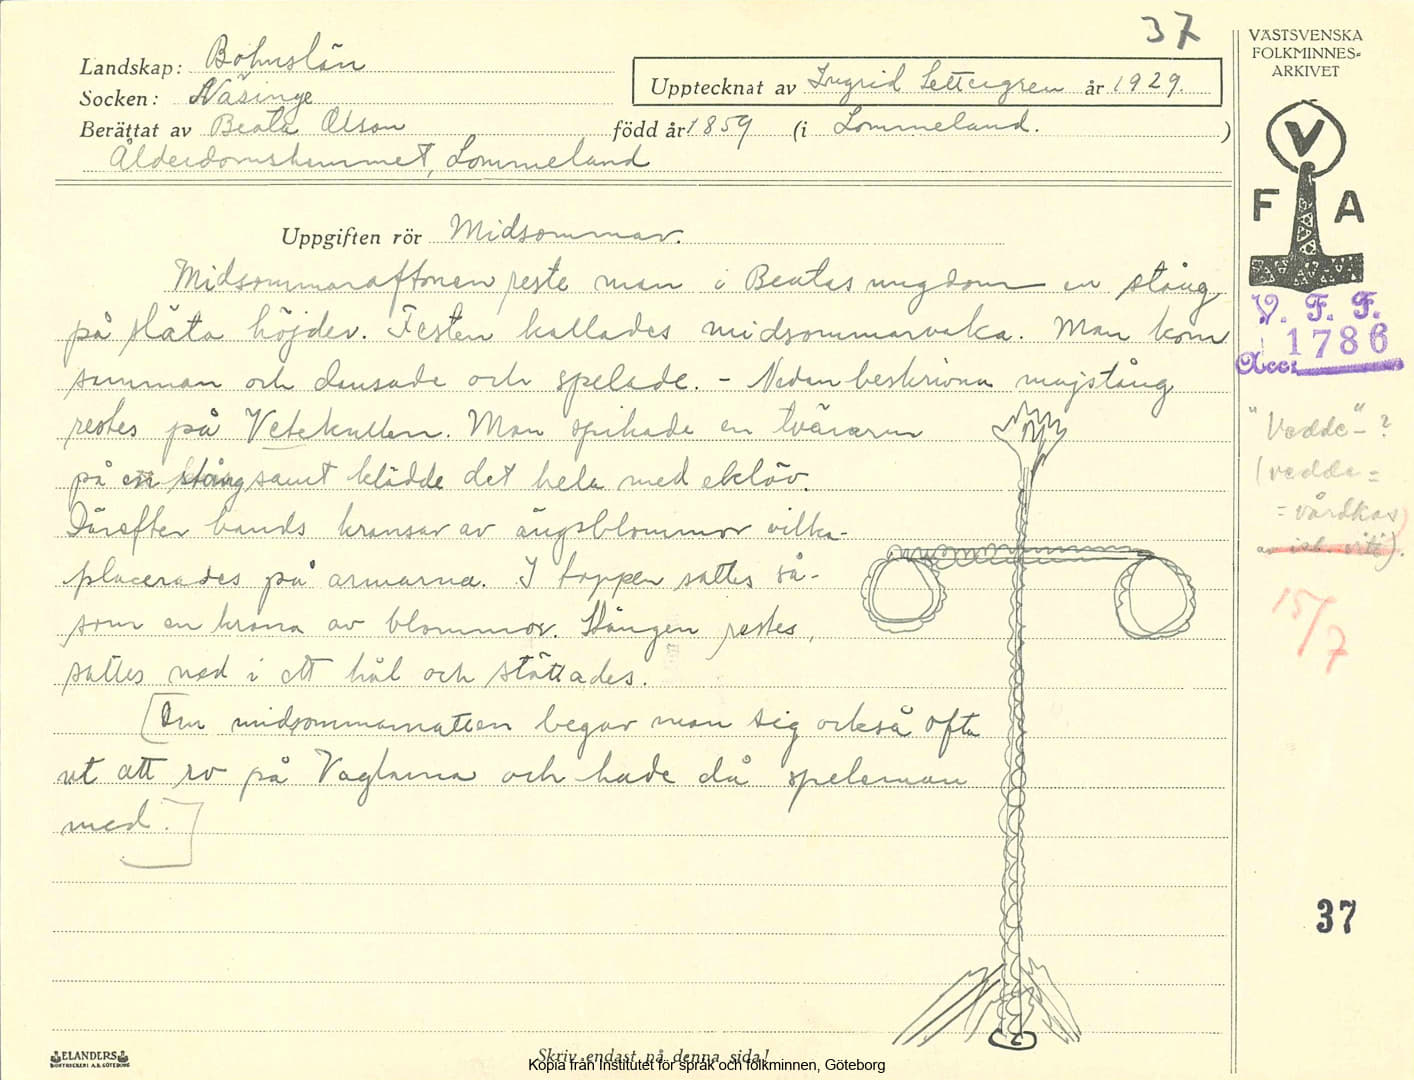 37
Landskap: Bohuslän
Socken: Näsinge
Upptecknat av Ingrid Settergren år 1929.
Berättat av Beata Olson född år 1859 (i Lommeland. )
Ålderdomshemmet, Lommeland
VÄSTSVENSKA
FOLKMINNES=
ARKIVET
V
F A
V. F. F.
1786
Acc:
Uppgiften rör Midsommar.
Midsommaraftonen reste man i Beatas ungdom en stång
på släta höjder. Festen kallades midsommarvaka. Man kom
samman och dansade och spelade. - Nedan beskrivna majstång
restes på Vetekullen. Man spikade en tvärarm
på en stång samt klädde det hela med eklöv.
Därefter bands kransar av ängsblommor vilka
placerades på armarna. I toppen sattes så-
som en krona av blommor. Stången restes,
sattes ned i ett hål och stöttades.
[Om midsommarnatten begav man sig också ofta
ut att ro på Vaglarna och hade då speleman
med.]
"Vedde"- ?
(vedde =
= vårdkas
15/7
37
ELANDERS
BOKTRYCKERI A.B. GÖTEBORG
Skriv endast på denna sida!
Kopia från Institutet för språk och folkminnen, Göteborg